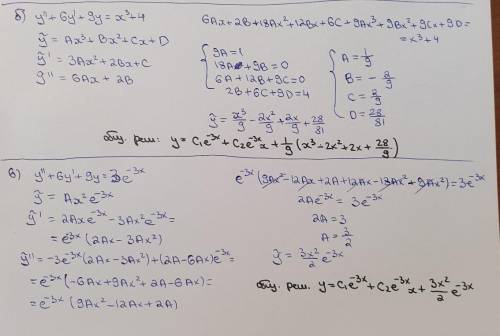 б) y'' + 6y' + 9y = x³ + 4
ỹ = Ax³ + Bx² + Cx + D
ỹ' = 3Ax² + 2Bx + C
ỹ'' = 6Ax + 2B
6Ax + 2B + 18Ax² + 12Bx + 6C + 9Ax³ + 9Bx² + 9Cx + 9D =
= x³ + 4
{ 9A = 1
18A + 9B = 0
6A + 12B + 9C = 0
2B + 6C + 9D = 4
{ A = 1/9
B = - 2/9
C = 2/9
D = 28/81
ỹ = x³/9 - 2x²/9 + 2x/9 + 28/81
общ. реш: y = C₁e^(-3x) + C₂e^(-3x) x + 1/9 (x³ - 2x² + 2x + 28/9)
в) y'' + 6y' + 9y = 3e^(-3x)
ỹ = Ax²e^(-3x)
ỹ' = 2Axe^(-3x) - 3Ax²e^(-3x) =
= e^(-3x) (2Ax - 3Ax²)
ỹ'' = -3e^(-3x) (2Ax - 3Ax²) + (2A - 6Ax)e^(-3x) =
= e^(-3x) (-6Ax + 9Ax² + 2A - 6Ax) =
= e^(-3x) (9Ax² - 12Ax + 2A)
e^(-3x) (9Ax² - 12Ax + 2A + 12Ax - 18Ax² + 9Ax²) = 3e^(-3x)
2Ae^(-3x) = 3e^(-3x)
2A = 3
A = 3/2
ỹ = 3x²/2 e^(-3x)
общ. реш. y = C₁e^(-3x) + C₂e^(-3x) x + 3x²/2 e^(-3x)